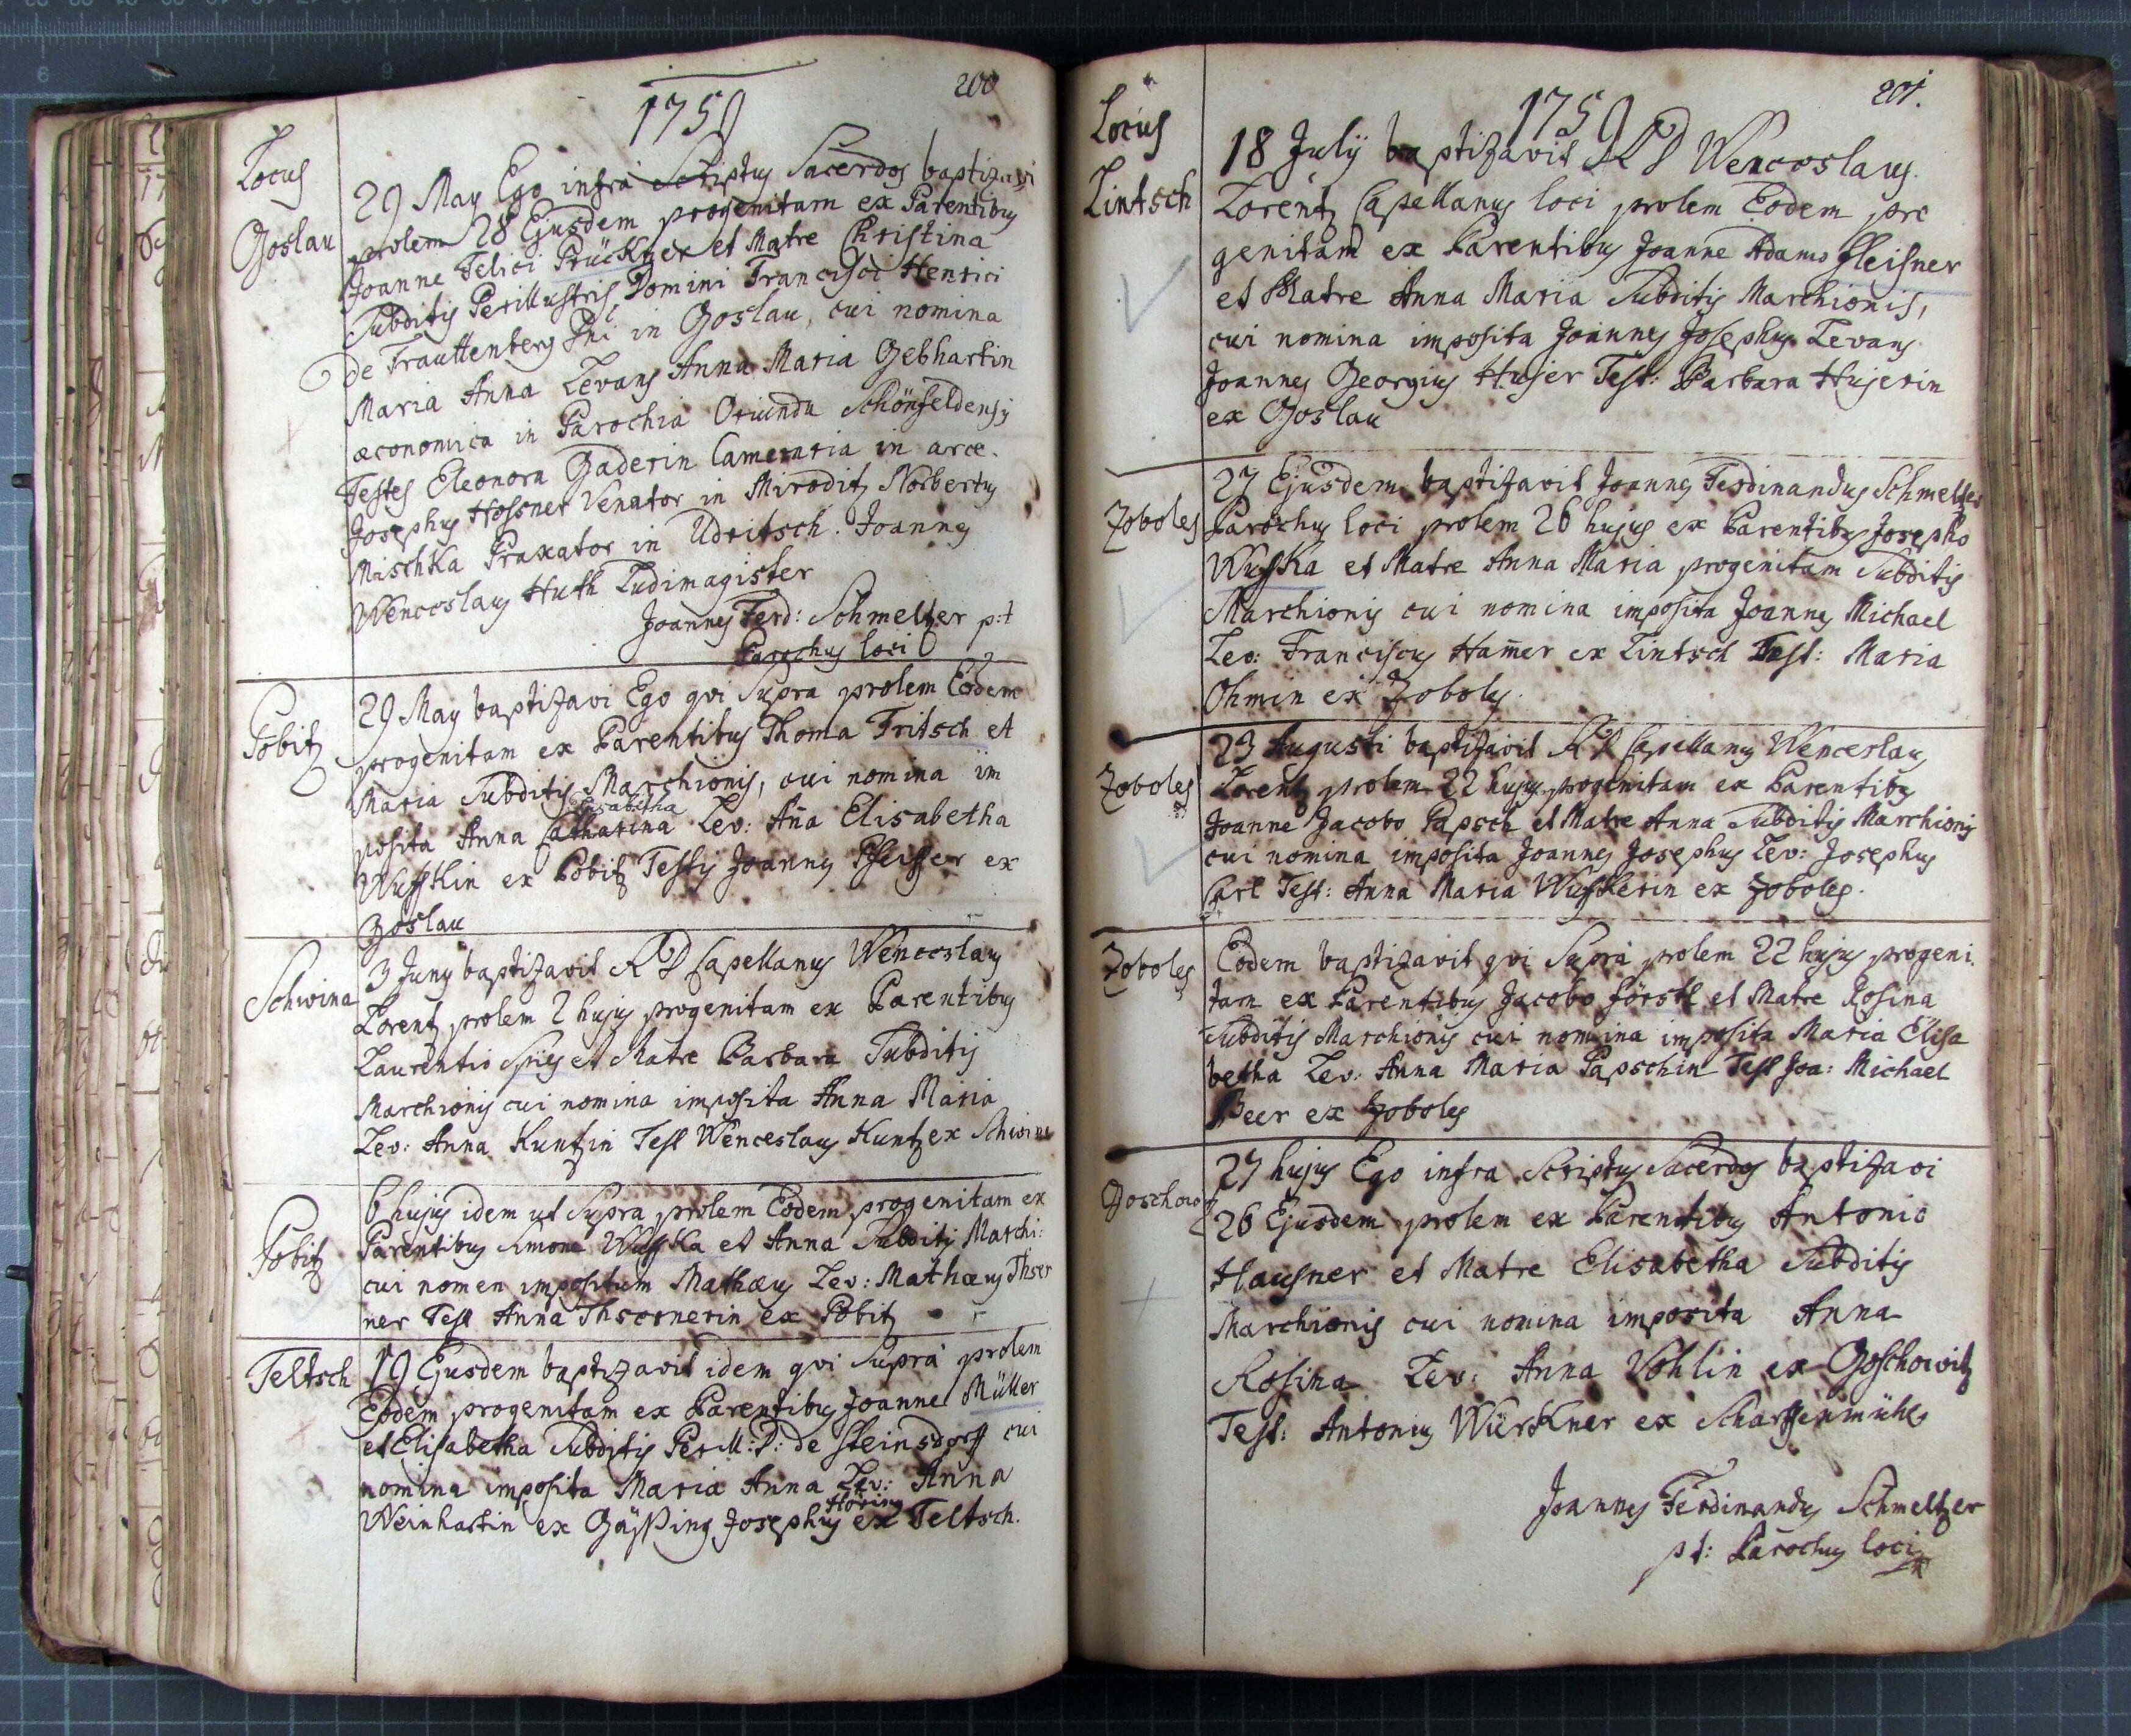 200
1759
Locus
Goslau
29 May Ego infra Scriptus Sacerdos baptizavi
prolem 28 Ejusdem progenitam ex Parentibus
Joanne Felici Prückner et Matre Christina
Subditis Perillustris Domini Francisci Henrici
de Trauttenberg Dni in Goslau, cui nomina
Maria Anna Levans Anna Maria Gebhartin
œconomica in Parochia Oriunda Schönfeldensi
Testes Eleonora Gaderin Cameraria in arce.
Josephus Hossner Venator in Miroditz Norbertus
Mischka Praxator in Udritsch. Joannes
Wenceslaus Huth Ludimagister
Joannes Ferd: Schmeltzer p:t
Parochus loci
Pobitz
29 May baptizavi Ego qvi Supra prolem Eodem
progenitam ex Parentibus Thoma Fritsch et
Maria Subditis Marchionis, cui nomina im
Elisabetha
posita Anna Catharina Lev: Aña Elisabetha
Wusskin ex Pobitz Testis Joannes Pfeiffer ex
Goslau
Schwina
3 Juny baptizavit RD Capellanus Wenceslaus
Lorentz prolem 2 hujus progenitam ex Parentibus
Laurentio Spies et Matre Barbara Subditis
Marchionis cui nomina imposita Anna Maria
Lev: Anna Kuntzin Test Wenceslaus Kuntz ex Schwina
Pobitz
6 hujus idem ut Supra prolem Eodem progenitam ex
Parentibus Simone Wusska et Anna Subditis Marchi:
cui nomen impositum Mathæus Lev: Mathæus Thser
ner Test Anna Thscernerin ex Pobitz
Teltsch
19 Ejusdem baptizavit idem qvi Supra prolem
Eodem progenitam ex Parentibus Joanne Müller
et Elisabetha Subditis Perill: D: de Steinsdorff cui
nomina imposita Maria Anna Lev: Anna
Höring
Weinhartin ex Gässing Josephus ex Teltsch.
201.
1759
Locus
Lintsch
18 July baptizavit RD Wenceslaus
Lorentz Capellanus loci prolem Eodem pro
genitam ex Parentibus Joanne Adamo Fleisner
et Matre Anna Maria Subditis Marchionis,
cui nomina imposita Joannes Josephus Levans
Joannes Georgius Hujer Test: Barbara Hujerin
ex Goslau
Zoboles
27 Ejusdem baptizavit Joannes Ferdinandus Schmeltzer
Parochus loci prolem 26 hujus ex Parentibus Josepho
Wusska et Matre Anna Maria progenitam Subditis
Marchionis cui nomina imposita Joannes Michael
Lev: Franciscus Ham̄er ex Lintsch Test: Maria
Ohmin ex Zoboles.
Zoboles
23 Augusti baptizavit RD Capellanus Wenceslaus
Lorentz prolem 22 hujus progenitam ex Parentibus
Joanne Jacobo Papsch et Matre Anna Subditis Marchionis
cui nomina imposita Joannes Josephus Lev: Josephus
Carl Test: Anna Maria Wusskerin ex Zoboles.
Zoboles
Eodem baptizavit qvi Supra prolem 22 hujus progeni.
tam ex Parentibus Jacobo Förstl et Matre Rosina
Subditis Marchionis cui nomina imposita Maria Elisa
betha Lev: Anna Maria Papschin Test Joa: Michael
Beer ex Zoboles
Goschowitz
27 hujus Ego infra Scriptus Sacerdos baptizavi
26 Ejusdem prolem ex Parentibus Antonio
Hausner et Matre Elisabetha Subditis
Marchionis cui nomina imposita Anna
Rosina Lev: Anna Vohlin ex Goschowitz
Test: Antonius Würckner ex Scharffenmühl
Joannes Ferdinandus Schmeltzer
p t: Parochus loci